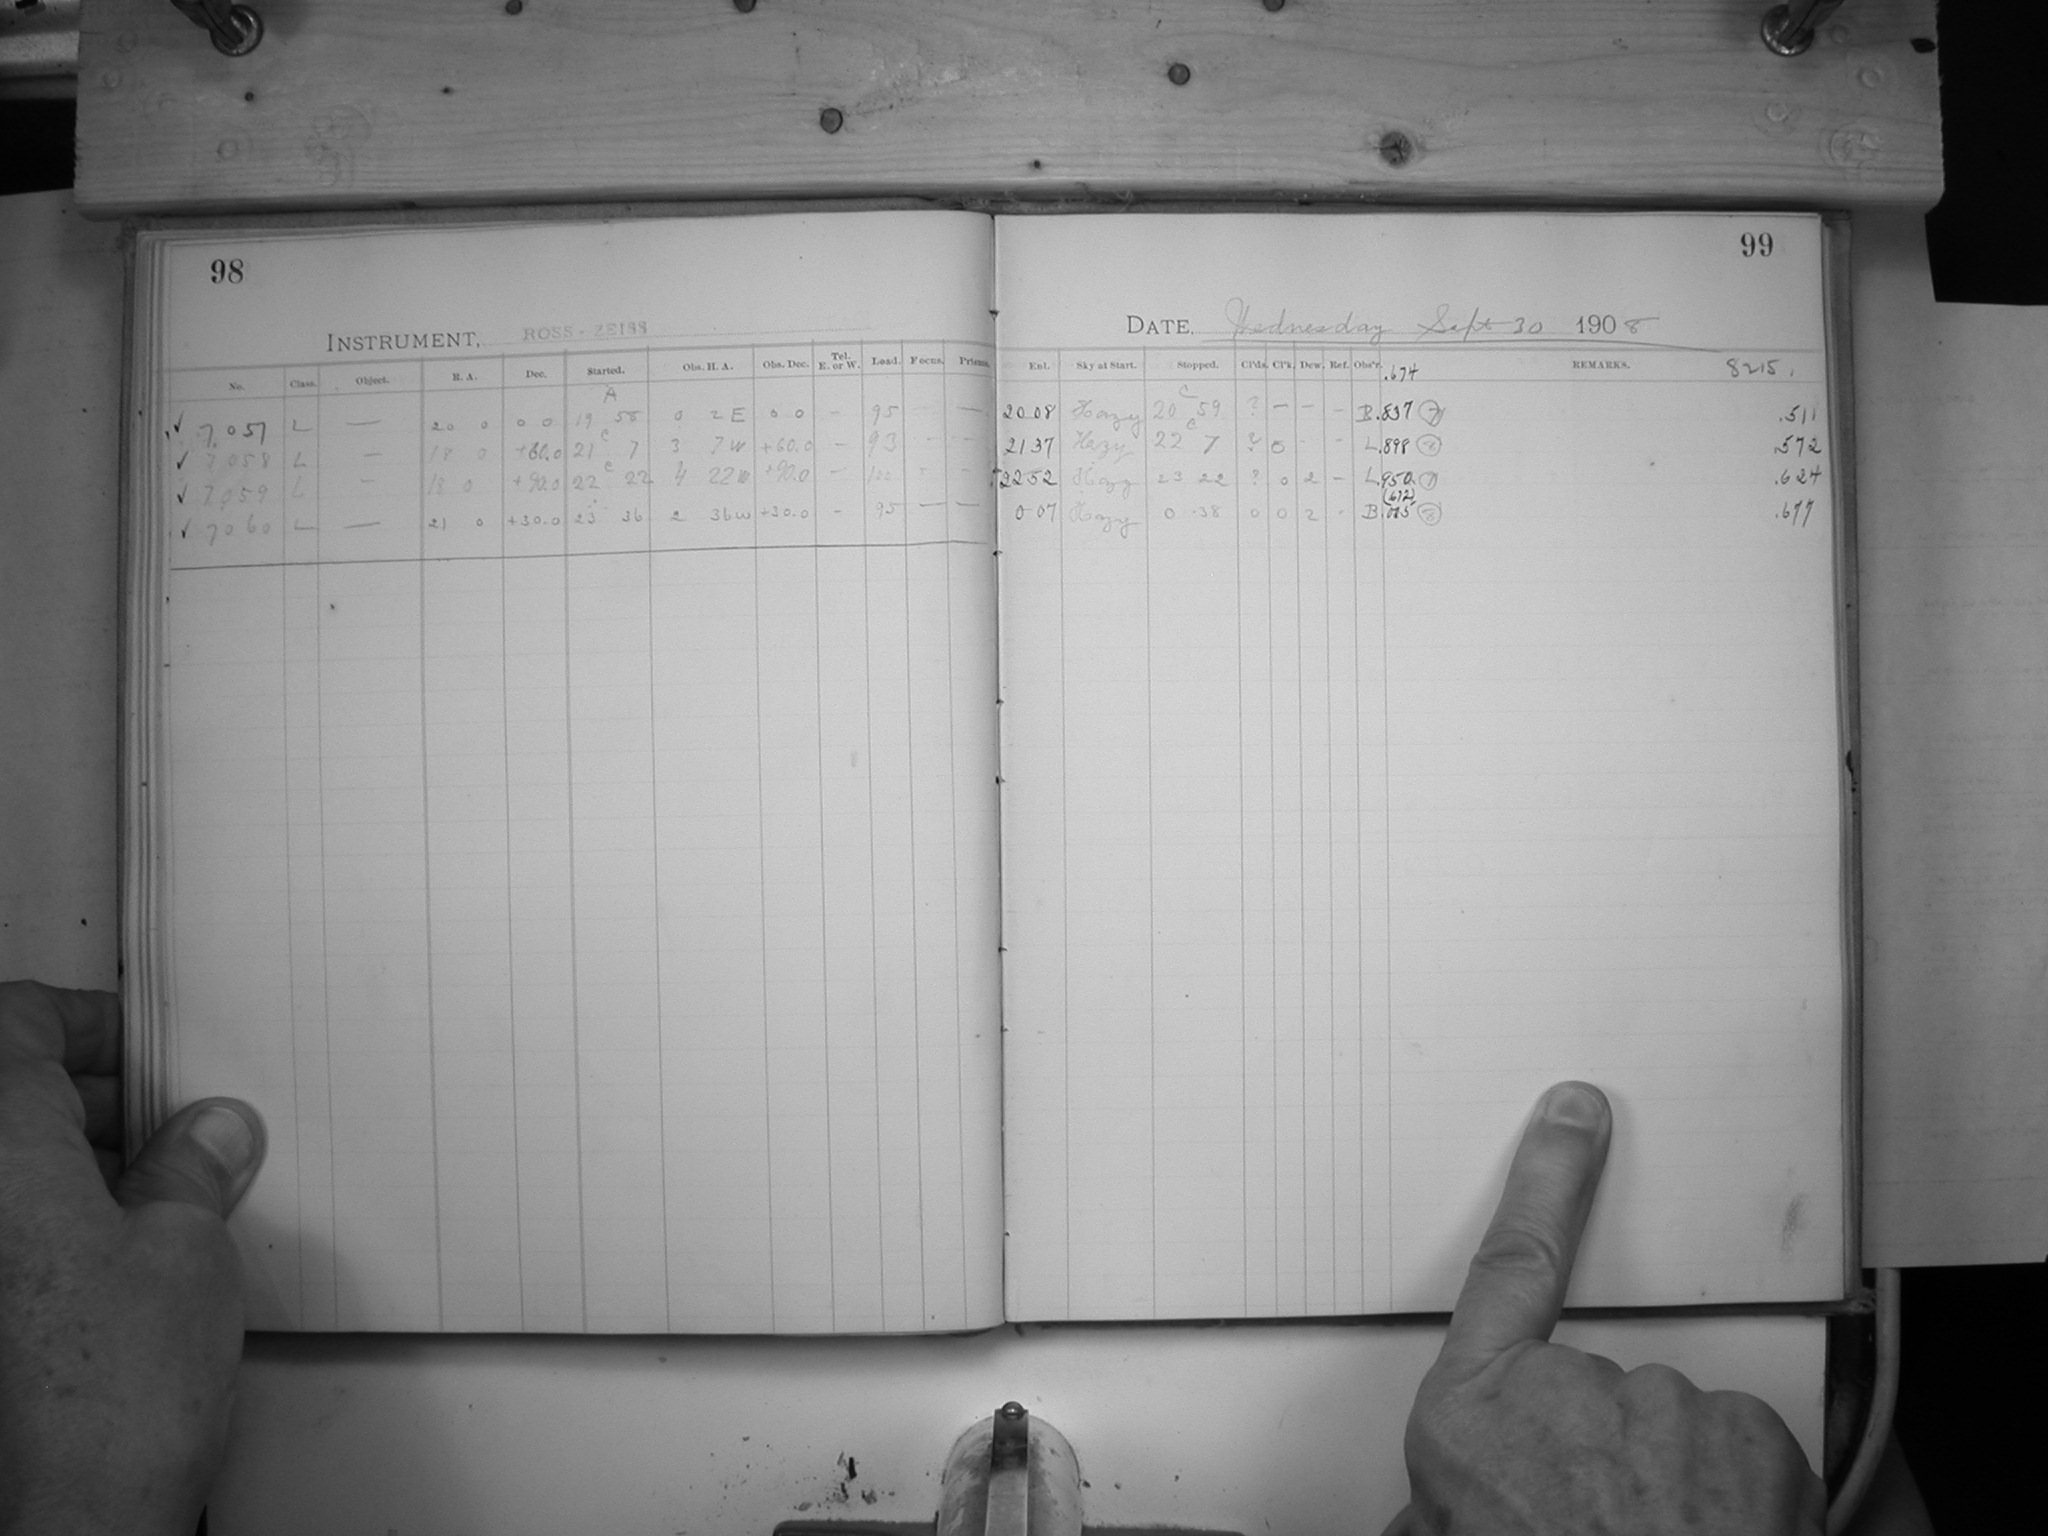 98
INSTRUMENT, ROSS-ZEISS
No. Class. Object. R. A. Dec. Started. Obs. H. A. Obs. Dec. Tel. E. or W. Load. Focus. Prisms.
A
✓ 7057 L — 20 0 0 0 19 58 0 2 E 0 0 - 95 — —
c
✓ 7058 L — 18 0 +60.0 21 7 3 7 W +60.0 - 93 - -
c
✓ 7059 L — 18 0 +90.0 22 22 4 22 W +90.0 - 100
✓ 7060 L — 21 0 +30.0 23 36 2 36 W +30.0 - 95 — —
99
DATE, Wednesday Sept 30 1908
Ent. Sky at Start. Stopped. Cl'ds. Cl'k. Dew. Ref. Obs'r. .674 REMARKS. 8215.
c
20 08 Hazy 20 59 ? - - - B .837 .511
c
21 37 Hazy 22 7 ? 0 - - L .898 .572
22 52 Hazy 23 22 ? 0 2 - L .950 .624
(672)
0 07 Hazy 0 38 0 0 2 - B .677